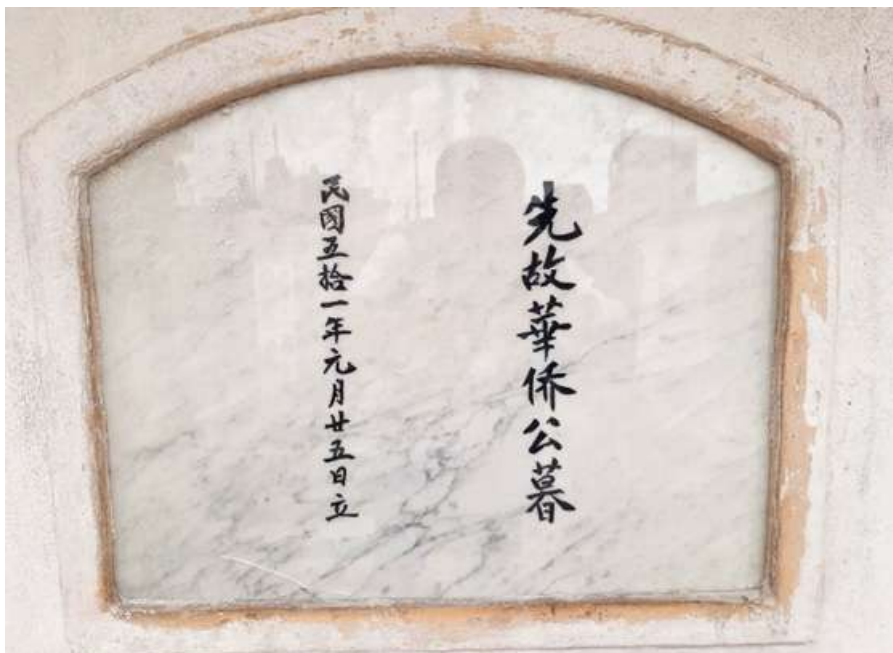 先故華侨公暮
民國五拾一年元月廿五日立